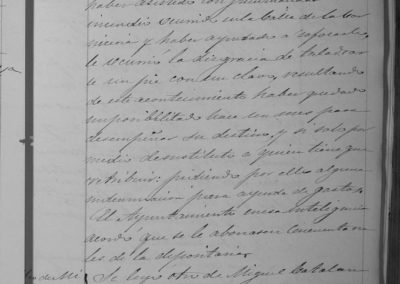 haber asistido con puntualidad
incendio ocurrido en la Calle de la Car
niceria y haber ayudado a sofocarle
le ocurrio la disgracia de taladrar
se un pie con un clavo, resultando
de este acontecimiento haber quedado
imposibilitado hace un mes para
desempeñar su destino, y si solo por
medio de sustituto a quien tiene que
retribuir: pidiendo por ello alguna
indemnizacion para ayuda de gastos
El Ayuntamiento en su inteligencia
acordó que se le abonasen cincuenta rea
les de la depositaria
Se leyo otro de Miguel Catalan